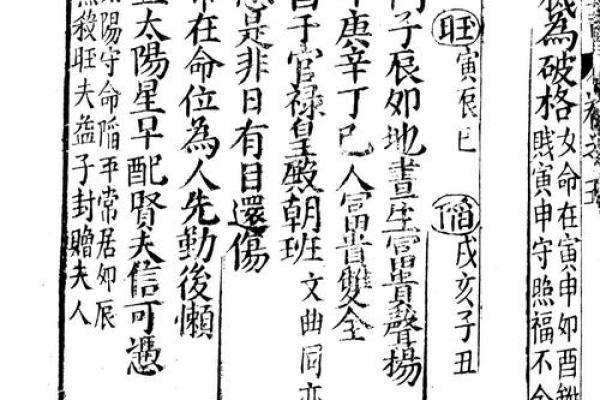 為破格
女命在寅申卯酉
賤寅申守照福不全
旺 寅辰巳 陷 戌亥子丑
子辰卯地晝生富貴聲揚
庚辛丁巳人富貴雙全
于官祿皇殿朝班 文曲同
是非日有目還傷
在命位為人先勤後懶
太陽星早配賢夫信可憑
陽守命陷平常居卯辰
殺旺夫益子封贈夫人